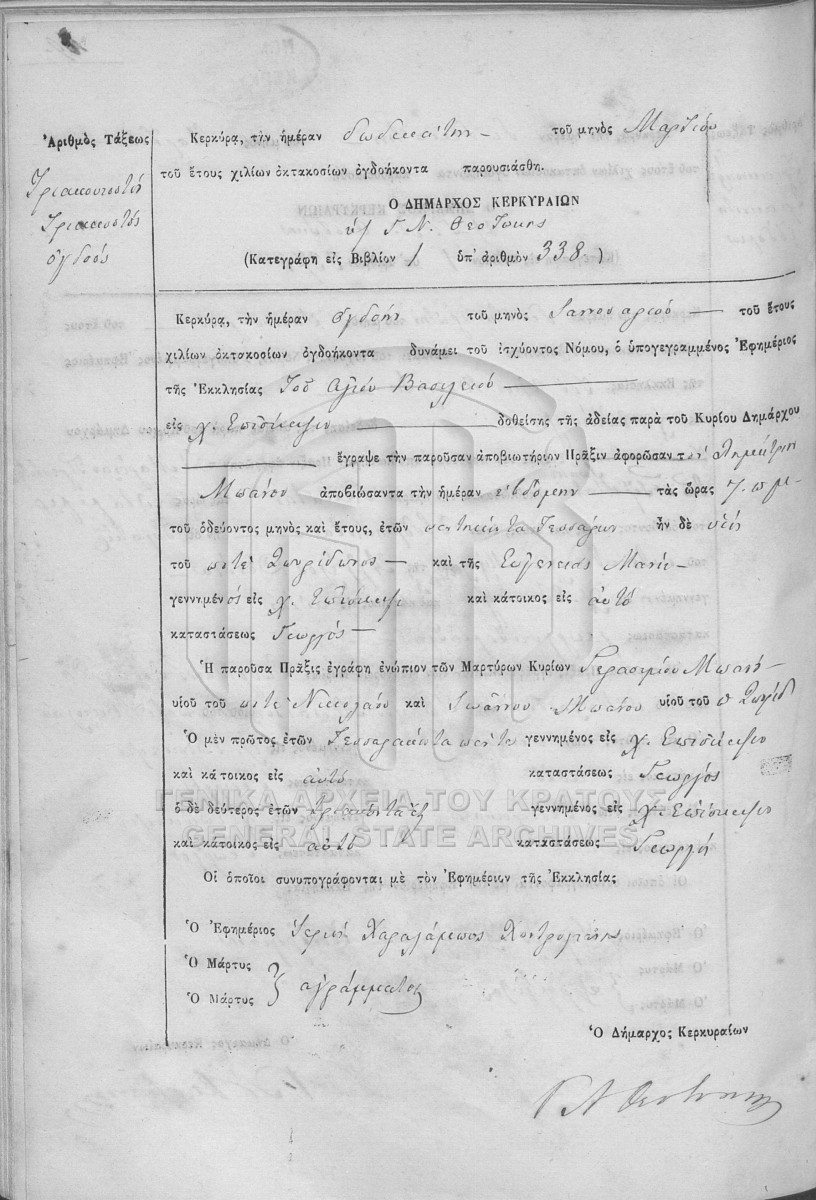 Ἀριθμὸς Τάξεως
Τριακοσιοστὴ
Τριακοστὸς
ὄγδοος
Κερκύρα, τὴν ἡμέραν δωδεκάτην τοῦ μηνὸς Μαρτίου
τοῦ ἔτους χιλίων ὀκτακοσίων ὀγδοήκοντα παρουσιάσθη.
Ὁ ΔΗΜΑΡΧΟΣ ΚΕΡΚΥΡΑΙΩΝ
Γ. Ν. Θεοτόκης
(Κατεγράφη εἰς Βιβλίον 1 ὑπ' ἀριθμὸν 338)
Κερκύρα, τὴν ἡμέραν ὀγδόην τοῦ μηνὸς Ἰαννουαρίου τοῦ ἔτους
χιλίων ὀκτακοσίων ὀγδοήκοντα δυνάμει τοῦ ἰσχύοντος Νόμου, ὁ ὑπογεγραμμένος Ἐφημέριος
τῆς Ἐκκλησίας Τοῦ Ἁγίου Βασιλείου
εἰς χ. Επίσκεψιν δοθείσης τῆς ἀδείας παρὰ τοῦ Κυρίου Δημάρχου
ἔγραψε τὴν παροῦσαν ἀποβιωτήριον Πρᾶξιν ἀφορῶσαν τον Δημήτριον
Μπάνου ἀποβιώσαντα τὴν ἡμέραν εβδόμην τὰς ὥρας 7. π με
τοῦ ὁδεύοντος μηνὸς καὶ ἔτους, ἐτῶν πεντήκοντα Τεσσάρων ἦν δὲ υἱὸς
τοῦ ποτὲ Σπυρίδωνος καὶ τῆς Ευγενείας Μάνη
γεννημένος εἰς χ. Επίσκεψι καὶ κάτοικος εἰς αὐτὸ
καταστάσεως Γεωργός
Ἡ παροῦσα Πρᾶξις ἐγράφη ἐνώπιον τῶν Μαρτύρων Κυρίων Γερασίμου Μπάνη
υἱοῦ τοῦ ποτὲ Νικολάου καὶ Ἰωάννου Μπάνου υἱοῦ τοῦ π Σπυρίδ
Ὁ μὲν πρῶτος ἐτῶν Τεσσαράκοντα πέντε γεννημένος εἰς χ. Επίσκεψιν
καὶ κάτοικος εἰς αὐτὸ καταστάσεως Γεωργός
ὁ δὲ δεύτερος ἐτῶν Τριάκοντα ἓξ γεννημένος εἰς χ. Επίσκεψιν
καὶ κάτοικος εἰς αὐτὸ καταστάσεως Γεωργὸς
Οἱ ὁποῖοι συνυπογράφονται μὲ τὸν Ἐφημέριον τῆς Ἐκκλησίας
Ὁ Ἐφημέριος Ἱερεὺς Χαράλαμπος
Ὁ Μάρτυς
Ὁ Μάρτυς ἀγράμματοι
Ὁ Δήμαρχος Κερκυραίων
Γ Ν Θεοτόκης
ΓΕΝΙΚΑ ΑΡΧΕΙΑ ΤΟΥ ΚΡΑΤΟΥΣ
GENERAL STATE ARCHIVES